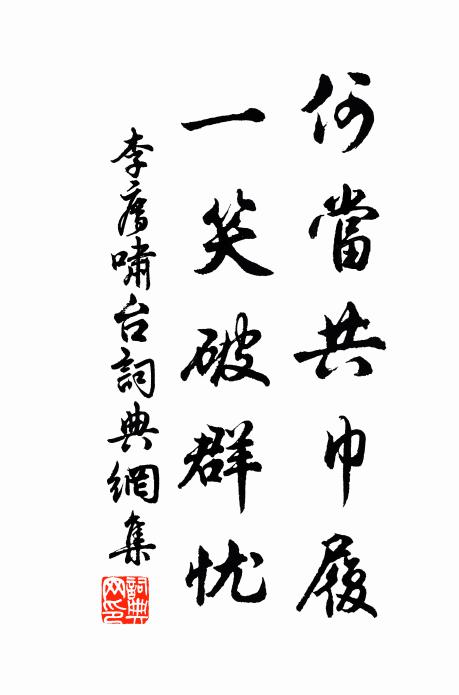 何當共巾履
一笑破群忧
李廌嘯台詞典網集
詞典
网印